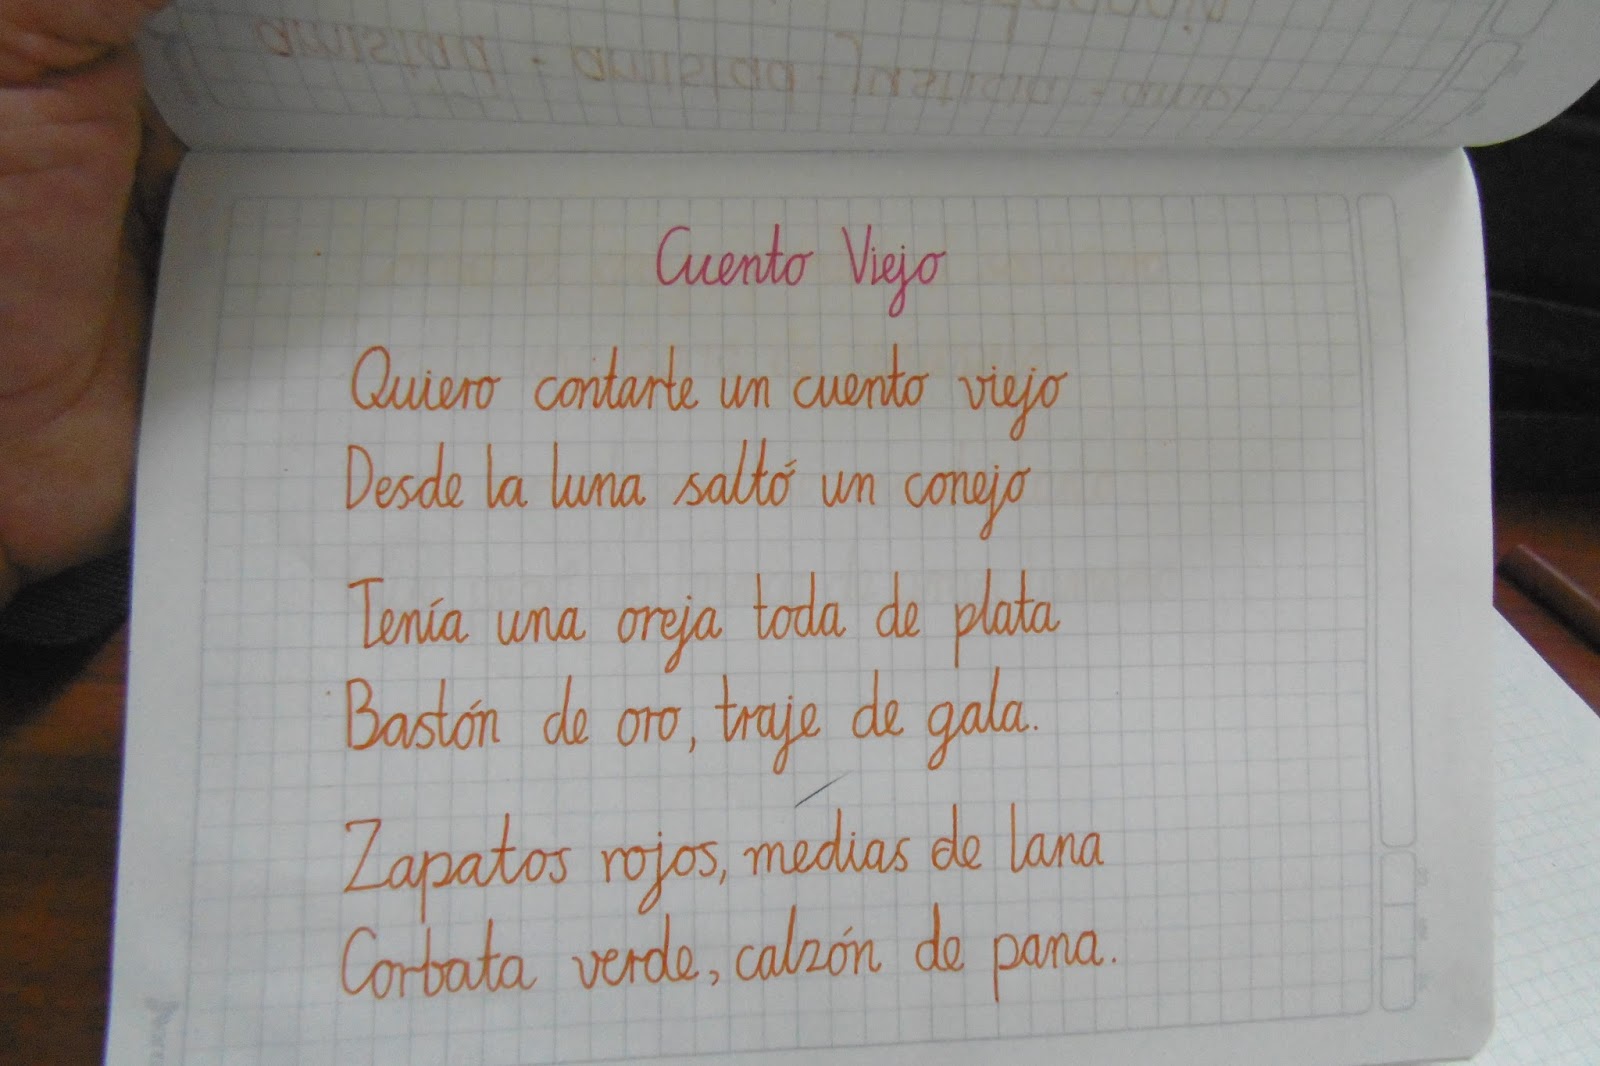 amistad - amistad - Justicia - amor
Cuento Viejo
Quiero contarte un cuento viejo
Desde la luna saltó un conejo
Tenía una oreja toda de plata
Bastón de oro, traje de gala.
Zapatos rojos, medias de lana
Corbata verde, calzón de pana.